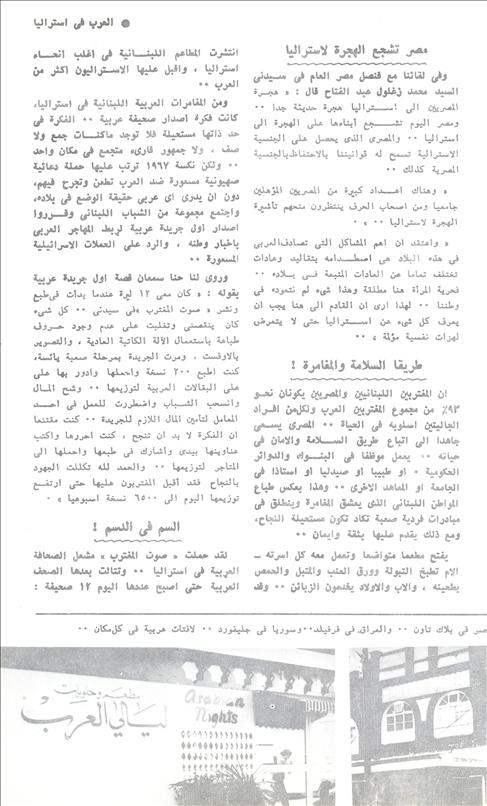 ● العرب فى استراليا
مصر تشجع الهجرة لاستراليا
وفى لقائنا مع قنصل مصر العام فى سيدنى
السيد محمد زغلول عبد الفتاح قال : « هجرة
المصريين الى استراليا هجرة حديثة جدا ٠٠
ومصر اليوم تشجع أبناءها على الهجرة الى
استراليا ٠٠ والمصرى الذى يحصل على الجنسية
الاسترالية تسمح له قوانيننا بالاحتفاظ بالجنسية
المصرية كذلك ٠٠
« وهناك اعداد كبيرة من المصريين المؤهلين
جامعيا ومن اصحاب الحرف ينتظرون منحهم تأشيرة
الهجرة لاستراليا ٠٠ » ٠
« واعتقد ان اهم المشاكل التى تصادف العربى
فى هذه البلاد هى اصطدامه بتقاليد وعادات
تختلف تماما عن العادات المتبعة فى بلاده ٠٠
فحرية المرأة هنا مطلقة وهذا شىء لم نتعوده فى
وطننا ٠٠ لهذا ارى ان القادم الى هنا يجب ان
يعرف كل شىء عن استراليا حتى لا يتعرض
لهزات نفسية مؤلمة » ٠٠
طريقا السلامة والمغامرة !
ان المغتربين اللبنانيين والمصريين يكونان نحو
٩٣٪ من مجموع المغتربين العرب ولكل من افراد
الجاليتين اسلوبه فى الحياة ٠٠ المصرى يسعى
جاهدا الى اتباع طريق السلامة والامان فى
حياته ٠٠ يعمل موظفا فى البنوك والدوائر
الحكومية ٠ او طبيبا او صيدليا او استاذا فى
الجامعة او المعاهد الاخرى ٠٠ وهذا بعكس طباع
المواطن اللبنانى الذى يعشق المغامرة وينطلق فى
مبادرات فردية صعبة تكاد تكون مستحيلة النجاح،
ومع ذلك يقدم عليها بثقة وايمان ٠٠
يفتح مطعما متواضعا وتعمل معه كل اسرته ــ
الام تطبخ التبولة وورق العنب والمتبل والحمص
بطحينه ، والاب والاولاد يخدمون الزبائن ٠٠ وقد
انتشرت المطاعم اللبنانية فى اغلب انحاء
استراليا ، واقبل عليها الاستراليون اكثر من
العرب ٠٠
ومن المغامرات العربية اللبنانية فى استراليا،
كانت فكرة اصدار صحيفة عربية ٠٠ الفكرة فى
حد ذاتها مستحيلة فلا توجد ماكينات جمع ولا
صف ، ولا جمهور قارىء متجمع فى مكان واحد
٠٠ ولكن نكسة ١٩٦٧ ترتب عليها حملة دعائية
صهيونية مسعورة ضد العرب تطعن وتجرح فيهم،
دون ان يدرى اى عربى حقيقة الوضع فى بلاده،
واجتمع مجموعة من الشباب اللبنانى وقرروا
اصدار اول جريدة عربية لربط المهاجر العربى
باخبار وطنه ، والرد على الحملات الاسرائيلية
المسعورة ٠٠
وروى لنا حنا سمعان قصة اول جريدة عربية
بقوله : « كان معى ١٢ ليرة عندما بدأت فى طبع
ونشر « صوت المغترب » فى سيدنى ٠٠ كل شىء
كان ينقصنى وتغلبت على عدم وجود حروف
طباعة باستعمال الآلة الكاتبة العادية ، والتصوير
بالاوفست ، ومرت الجريدة بمرحلة صعبة يائسة،
كنت اطبع ٢٠٠ نسخة واحملها وادور بها على
على البقالات العربية لتوزيعها ٠٠ وشح المال
وانسحب الشباب واضطررت للعمل فى احد
المعامل لتأمين المال اللازم للجريدة ٠٠ كنت مقتنعا
ان الفكرة لا بد ان تنجح ، كنت احررها واكتب
عناوينها بيدى واشارك فى طبعها واحملها الى
المتاجر لتوزيعها ٠٠ والحمد لله تكللت الجهود
بالنجاح فقد أقبل المغتربون عليها حتى ارتفع
توزيعها اليوم الى ٦٥٠٠ نسخة اسبوعيا » ٠
السم فى الدسم !
لقد حملت « صوت المغترب » مشعل الصحافة
العربية فى استراليا ٠٠ وتتالت بعدها الصحف
العربية حتى اصبح عددها اليوم ١٢ صحيفة :
صر فى بلاك تاون ٠٠ والعراق فى فرفيلد ٠٠ وسوريا فى جليفورد ٠٠ لافتات عربية فى كل مكان ٠٠
مطعم وحلويات
ليالي العرب
Arabian
Nights